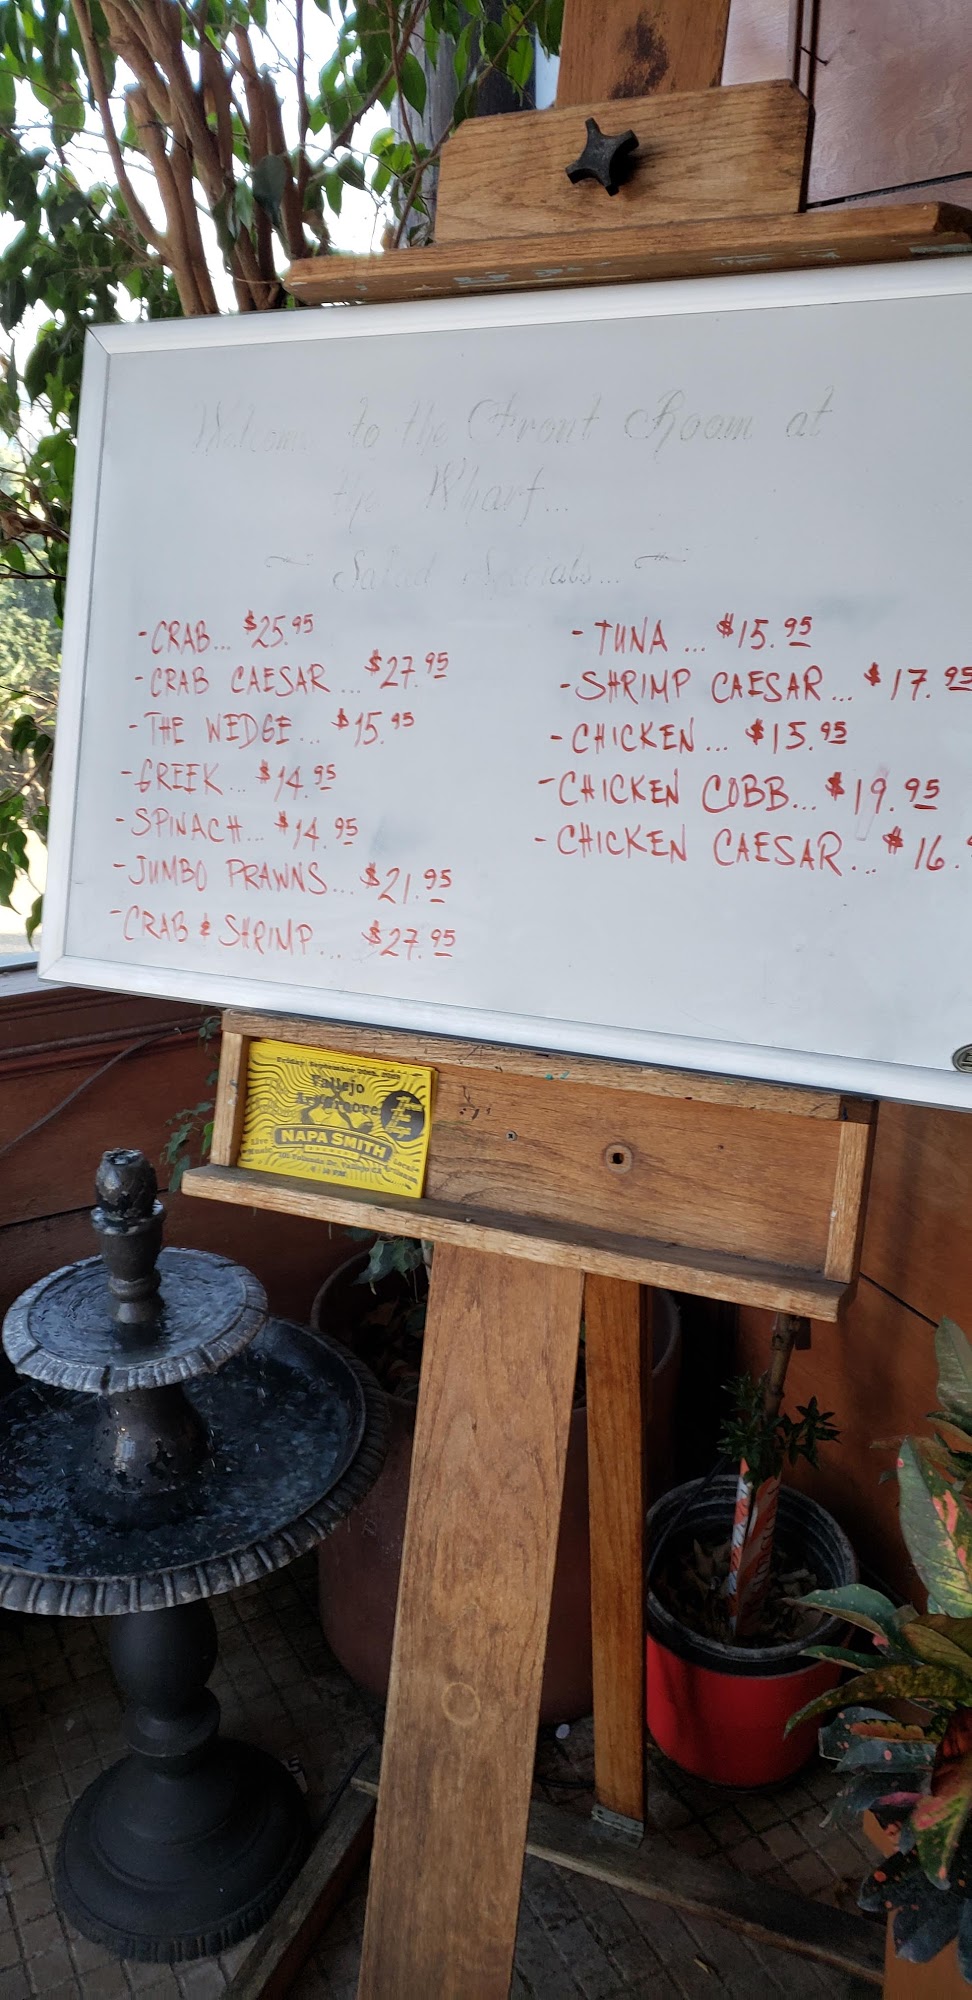 Welcome to the Front Room at
the Wharf...
Salad Specials...
- CRAB... $25.95
- CRAB CAESAR... $27.95
- THE WEDGE... $15.95
- GREEK... $14.95
- SPINACH... $14.95
- JUMBO PRAWNS... $21.95
- CRAB & SHRIMP... $27.95
- TUNA... $15.95
- SHRIMP CAESAR... $17.95
- CHICKEN... $15.95
- CHICKEN COBB... $19.95
- CHICKEN CAESAR... $16.
Friday, September 20th,
Vallejo
Art Groove
Live
Music
NAPA SMITH
Local
Artisans